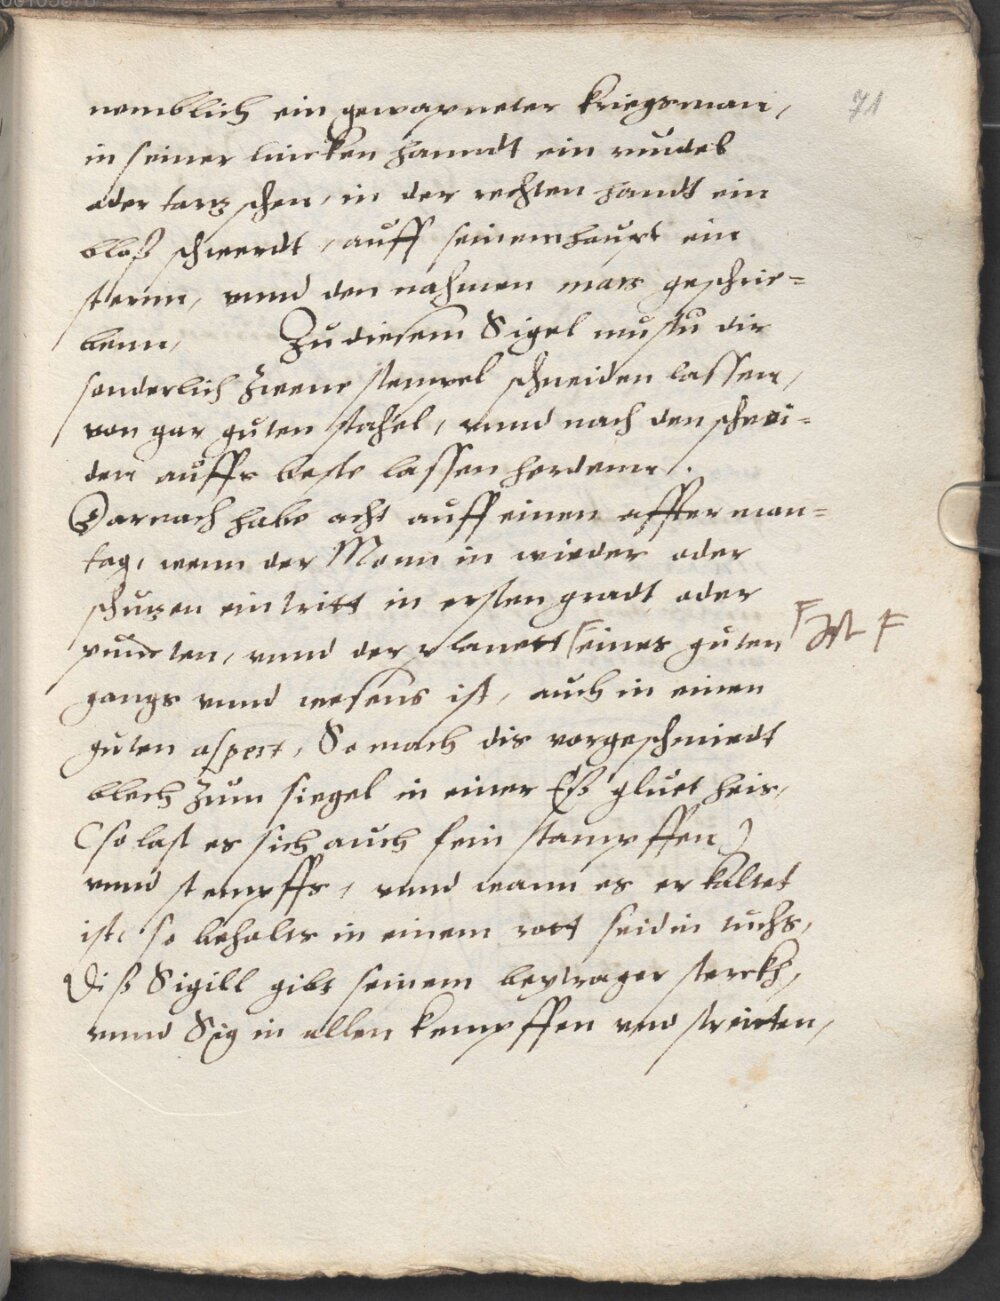 71
nemblich ein gewapneter kriegsman,
in seiner lincken hanndt ein rundel
oder tartzschen, in der rechten handt ein
bloß schwerdt, auff seinem haupt ein
sternn, vnnd den nahmen mars geschrie=
benn, Zu diesem Sigel mustu dir
sonderlich zwene stempel schneiden lassen,
von gar guten stahel, vnnd nach den schnei=
den auffs beste lassen herdenn.
Darnach habe acht auff einen affterman=
tag, wenn der Monn in wieder oder
schutzen eintritt in ersten gradt oder
puncten, vnnd der planett eines guten
gangs vnnd wesens ist, auch in einen
guten aspect, So mach dis vorgeschmiedt
blech zum siegel in einer Eß gluet heis,
(so last es sich auch fein stampffen)
vnnd stempffs, vnnd wann es erkaltet
ist, so behalts in einem rott seidin tuchs,
Diß Sigill gibt seinem beytrager sterckh,
vnnd Sig in allen kempffen vnd streitten,